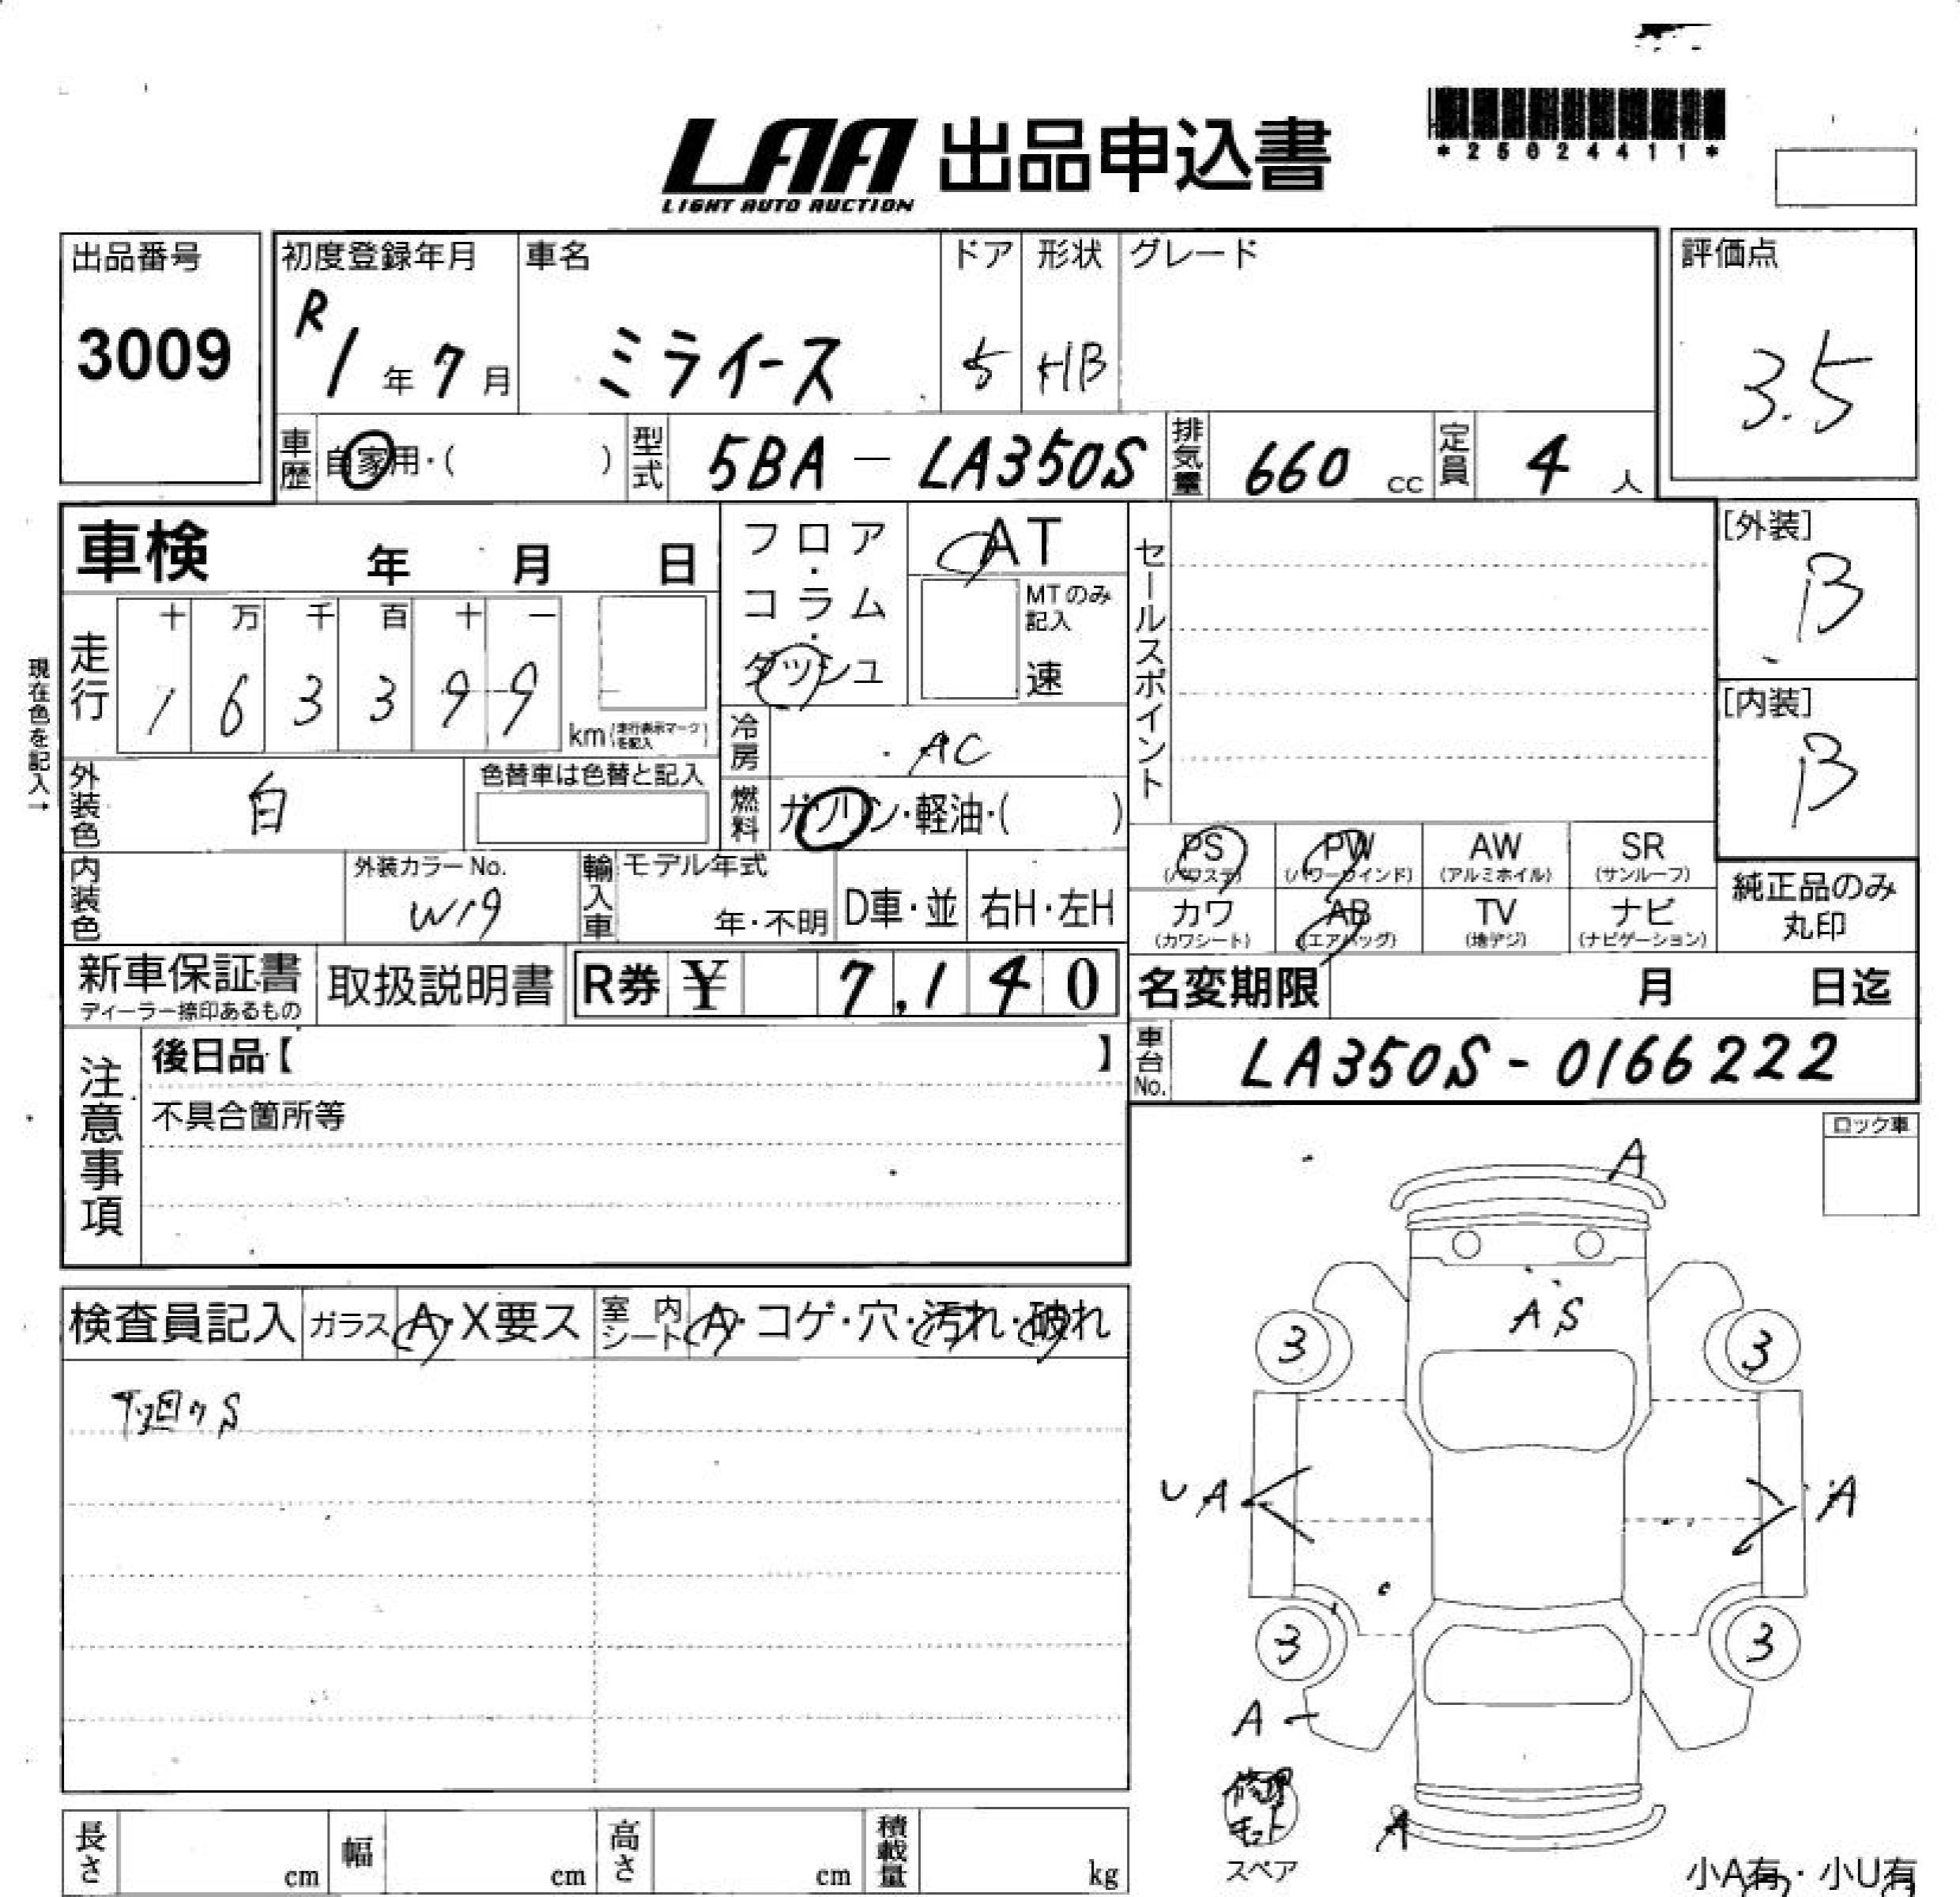 LAA 出品申込書
LIGHT AUTO AUCTION
*25024411*
出品番号
3009
初度登録年月
R1年7月
車名
ミライース
ドア
5
形状
HB
グレード
評価点
3.5
車歴 自家用・( )
型式 5BA-LA350S
排気量 660 cc
定員 4 人
車検 年 月 日
フロア・コラム・ダッシュ
AT
MTのみ記入
速
セールスポイント
[外装]
B
[内装]
B
現在色を記入→
走行
十 万 千 百 十 一
1 6 3 3 9 9
km(走行表示マークを記入)
冷房 AC
外装色 白
色替車は色替と記入
燃料 ガソリン・軽油・( )
内装色
外装カラーNo.
W19
輸入車
モデル年式
年・不明
D車・並
右H・左H
PS (パワステ)
PW (パワーウインド)
AW (アルミホイル)
SR (サンルーフ)
カワ (カワシート)
AB (エアバッグ)
TV (地デジ)
ナビ (ナビゲーション)
純正品のみ丸印
新車保証書
ディーラー捺印あるもの
取扱説明書
R券 ¥ 7,140
名変期限 月 日迄
車台No. LA350S-0166222
注意事項
後日品【 】
不具合箇所等
ロック車
検査員記入
ガラス A・X要ス
室内シート A・コゲ・穴・汚れ・破れ
A
A S
3 3
U A A
3 3
A
修理キット
スペア
A
長さ cm
幅 cm
高さ cm
積載量 kg
小A有・小U有